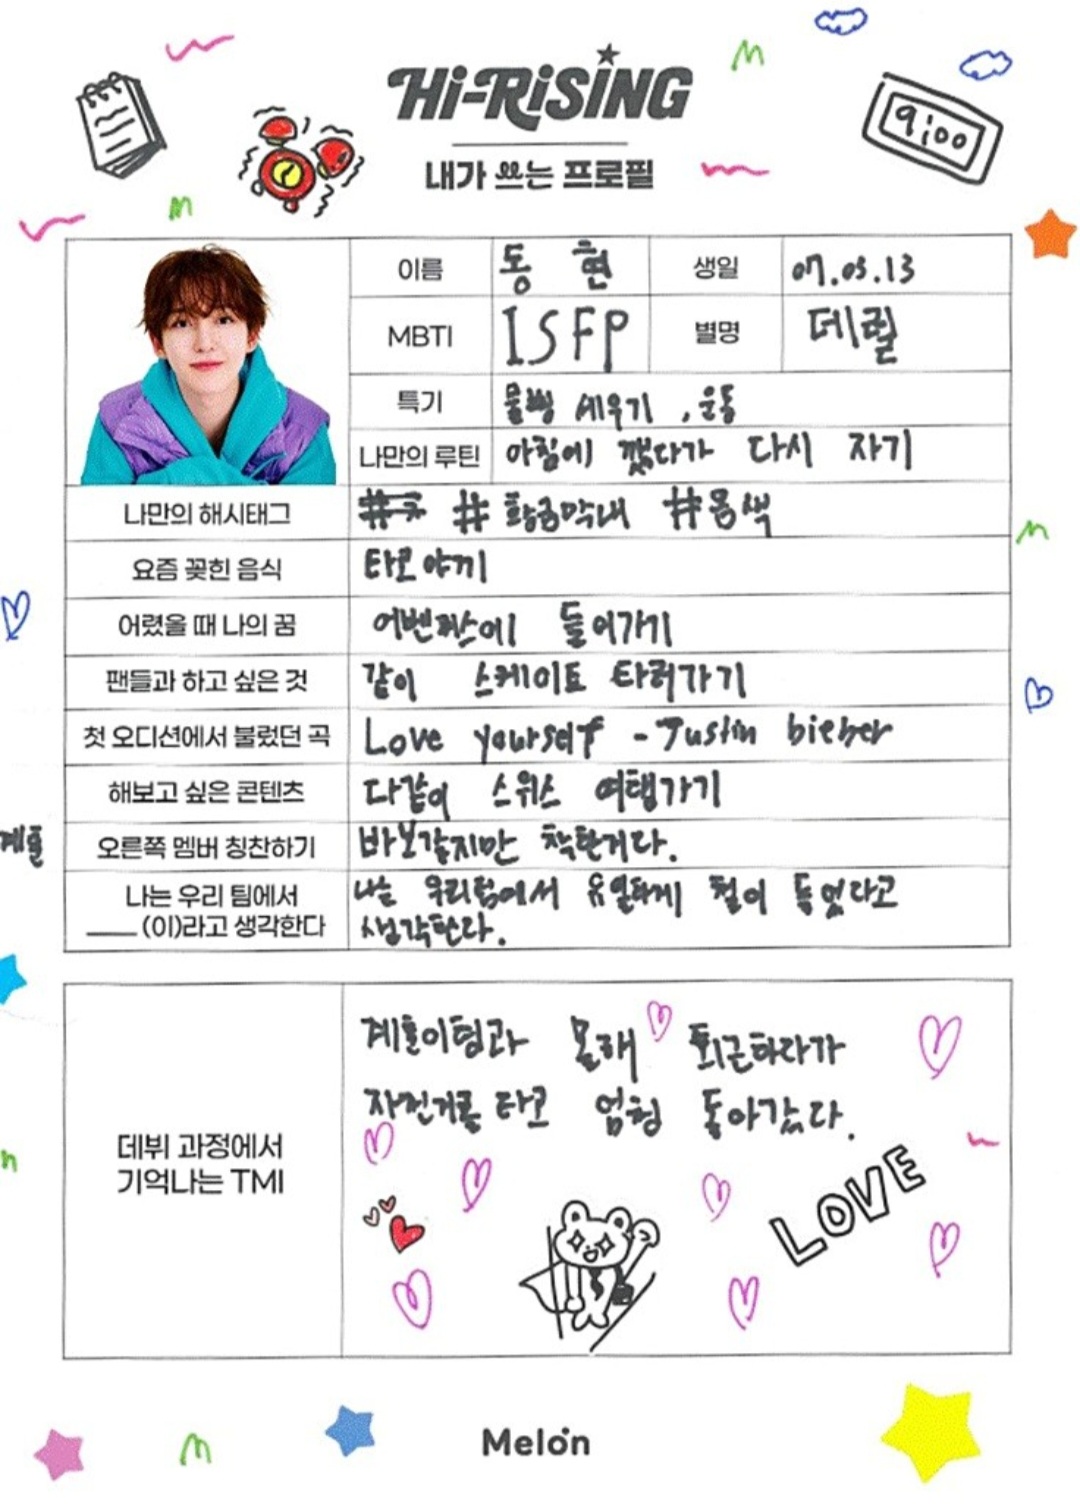 Hi-RiSiNG
내가 쓰는 프로필
9:00
이름 동 현 생일 07.05.13
MBTI ISFP 별명 데릴
특기 물병 세우기 , 운동
나만의 루틴 아침에 깼다가 다시 자기
나만의 해시태그 #황금막내 #음색
요즘 꽂힌 음식 타코야끼
어렸을 때 나의 꿈 어벤져스에 들어가기
팬들과 하고 싶은 것 같이 스케이트 타러가기
첫 오디션에서 불렀던 곡 Love yourself - Justin bieber
해보고 싶은 콘텐츠 다같이 스위스 여행가기
계훈
오른쪽 멤버 칭찬하기 바보같지만 착한거다.
나는 우리 팀에서
___ (이)라고 생각한다
나는 우리팀에서 유일하게 철이 들었다고
생각한다.
데뷔 과정에서
기억나는 TMI
계훈이형과 몰래 퇴근하다가
자전거를 타고 엄청 돌아갔다.
LOVE
Melon